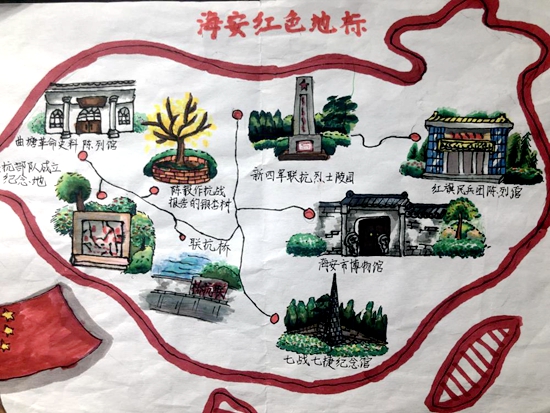 海安红色地标
曲塘革命史料陈列馆
抗部队成立
纪念地
陈毅作抗战
报告的银杏树
新四军联抗烈士陵园
红旗民兵团陈列馆
联抗桥
海安市博物馆
七战七捷纪念馆